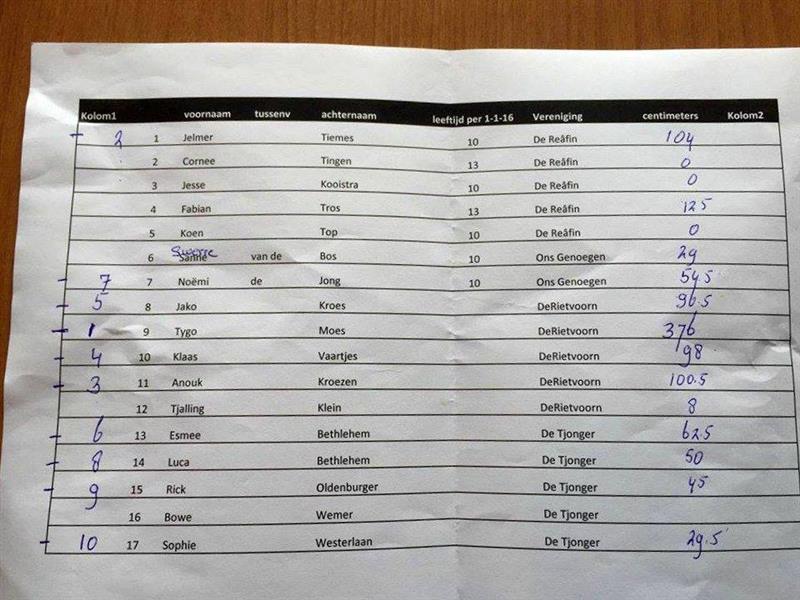 Kolom1 voornaam tussenv achternaam leeftijd per 1-1-16 Vereniging centimeters Kolom2
2 1 Jelmer Tiemes 10 De Reâfin 104
2 Cornee Tingen 13 De Reâfin 0
3 Jesse Kooistra 10 De Reâfin 0
4 Fabian Tros 13 De Reâfin 12.5
5 Koen Top 10 De Reâfin 0
6 Sanne van de Bos 10 Ons Genoegen 29
7 7 Noëmi de Jong 10 Ons Genoegen 54.5
5 8 Jako Kroes DeRietvoorn 96.5
1 9 Tygo Moes DeRietvoorn 376
4 10 Klaas Vaartjes DeRietvoorn 98
3 11 Anouk Kroezen DeRietvoorn 100.5
12 Tjalling Klein DeRietvoorn 8
6 13 Esmee Bethlehem De Tjonger 62.5
8 14 Luca Bethlehem De Tjonger 50
9 15 Rick Oldenburger De Tjonger 45
16 Bowe Wemer De Tjonger
10 17 Sophie Westerlaan De Tjonger 29.5